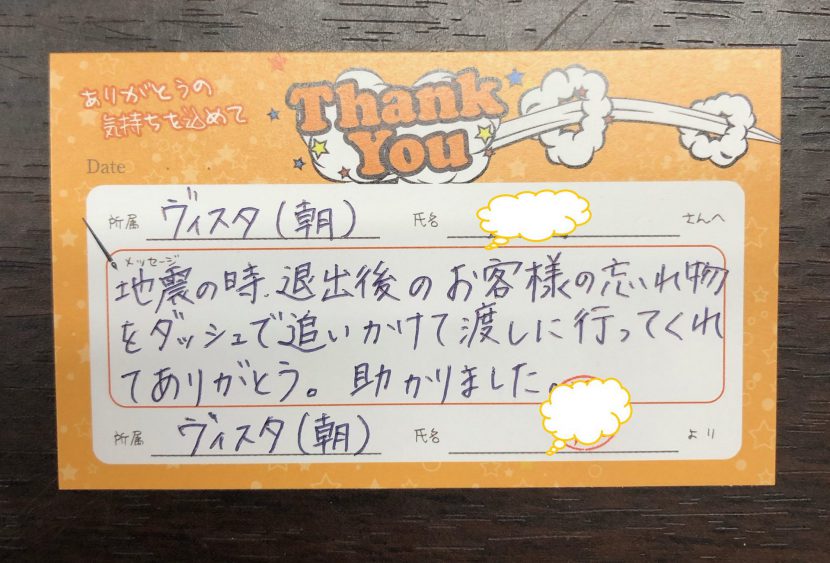 ありがとうの
気持ちを込めて
Thank
You
Date . .
所属 ヴィスタ(朝) 氏名 さんへ
メッセージ
地震の時、退出後のお客様の忘れ物
をダッシュで追いかけて渡しに行ってくれ
てありがとう。助かりました。
所属 ヴィスタ(朝) 氏名 より